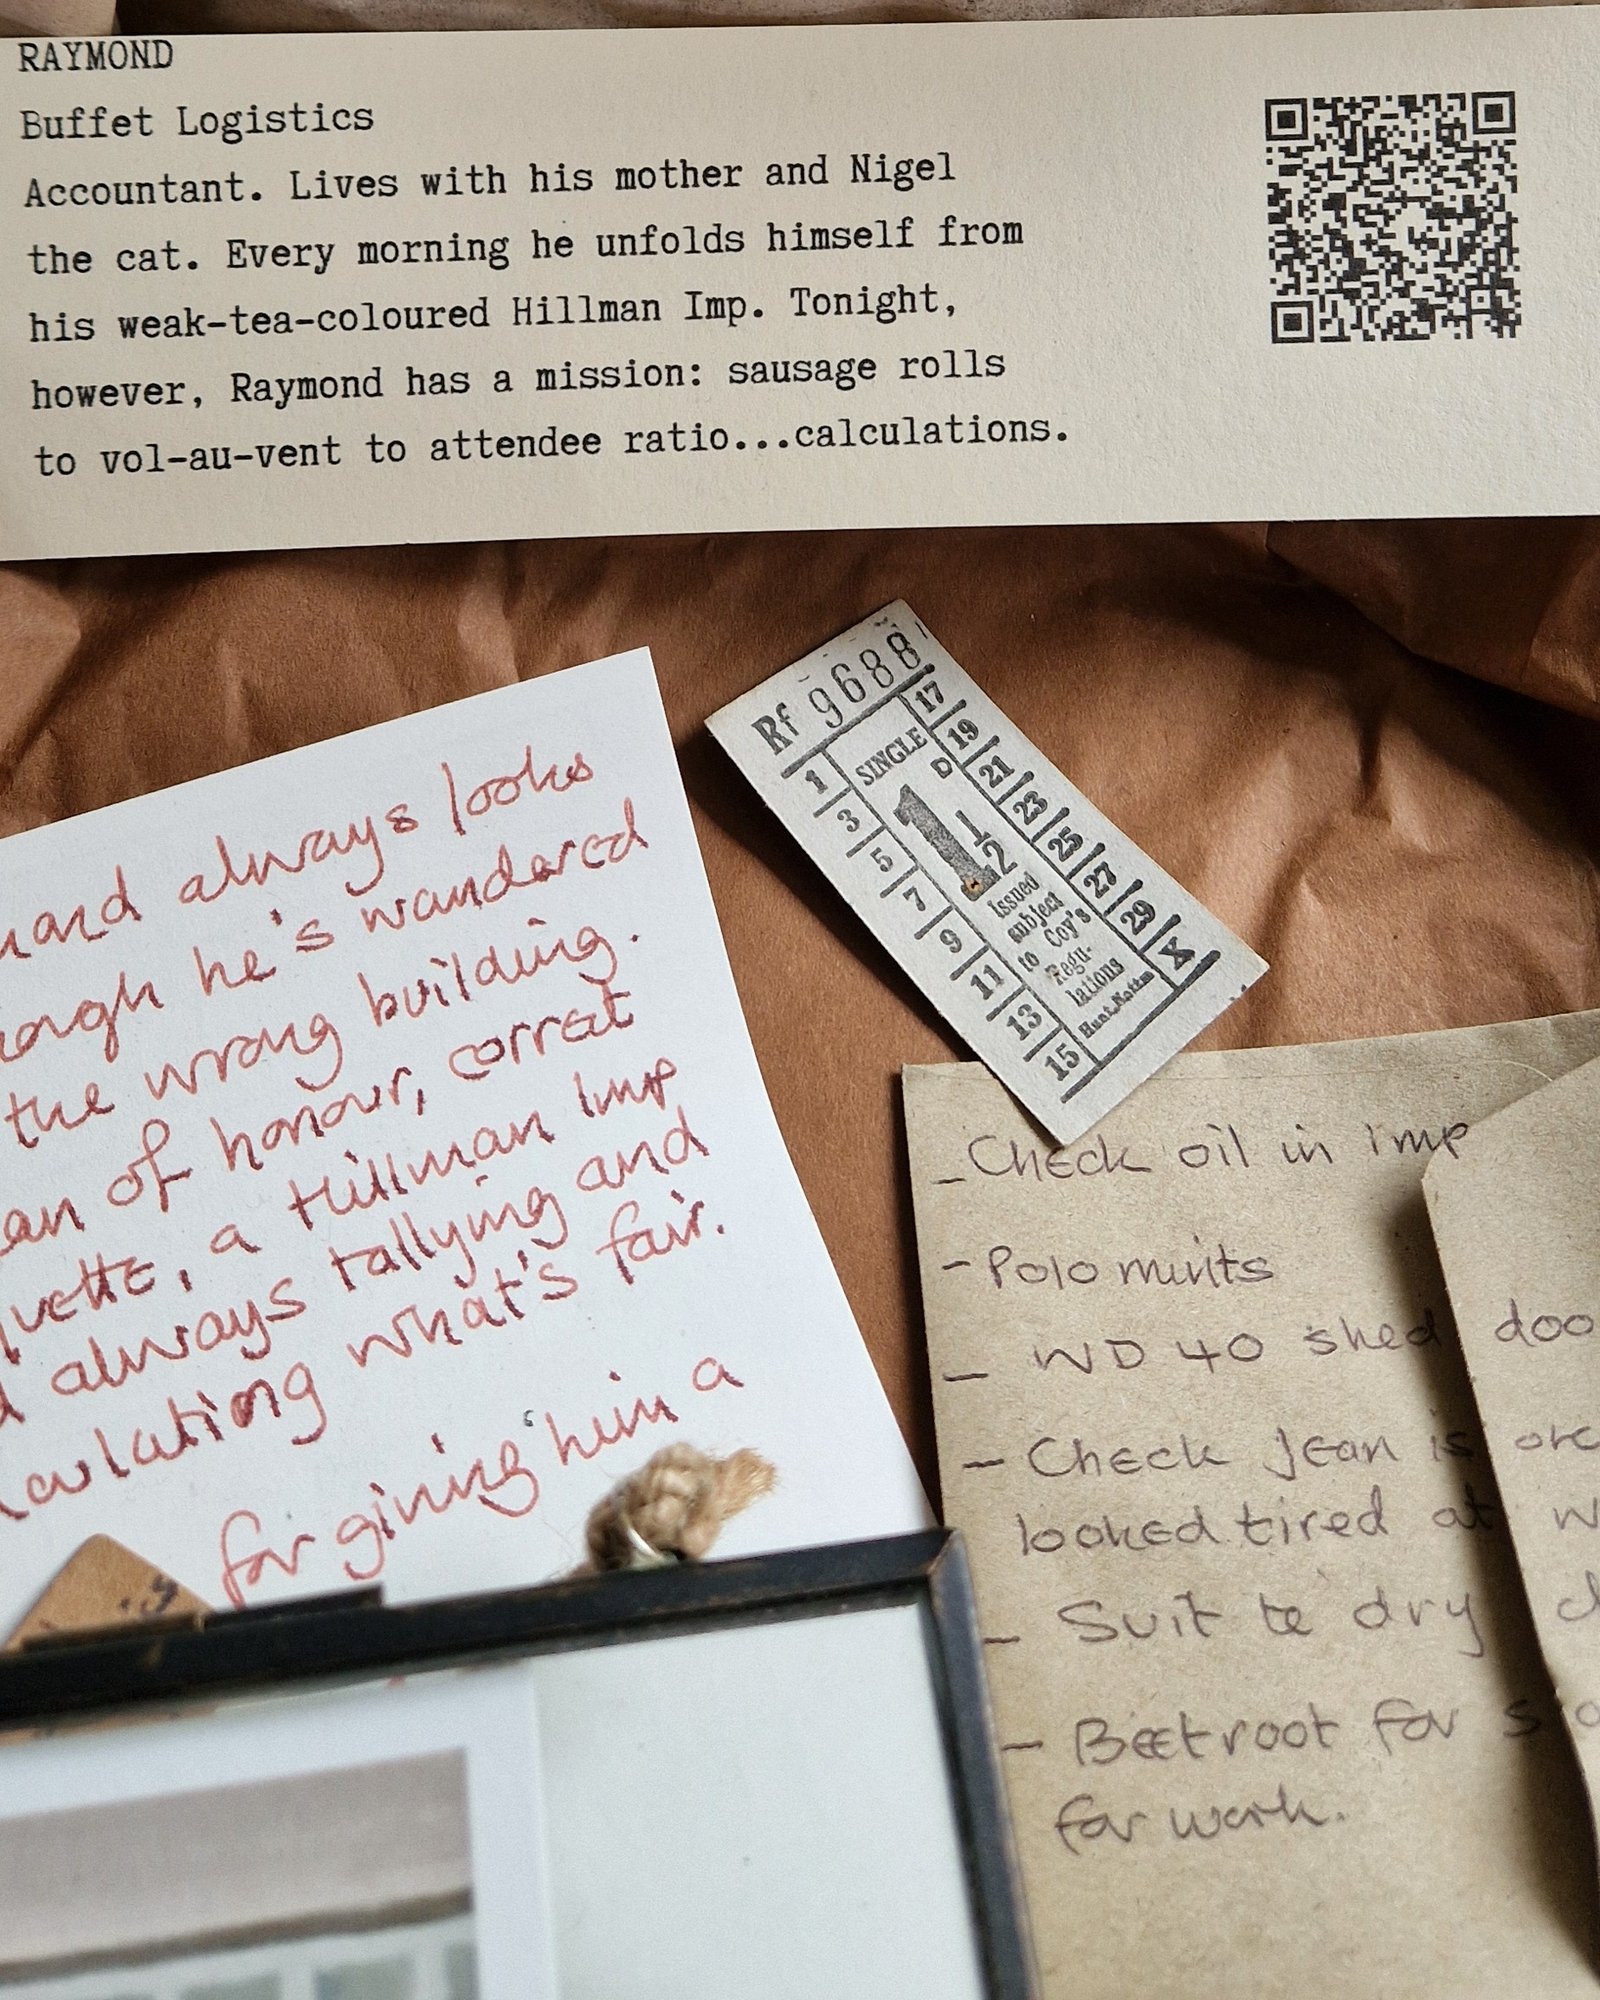 RAYMOND
Buffet Logistics
Accountant. Lives with his mother and Nigel
the cat. Every morning he unfolds himself from
his weak-tea-coloured Hillman Imp. Tonight,
however, Raymond has a mission: sausage rolls
to vol-au-vent to attendee ratio...calculations.
Rf 9688
SINGLE
D
1 1/2
Issued
subject
to Coy's
Regu-
lations
Hunt, Nottm
1
3
5
7
9
11
13
15
17
19
21
23
25
27
29
X
always looks
he's wandered
the wrong building.
of honour, correct
a Hillman Imp
always tallying and
what's fair.
for giving him a
- Check oil in Imp
- Polo mints
- WD 40 shed doo
- Check Jean is
looked tired at
- Suit to dry
- Beetroot for
for work.